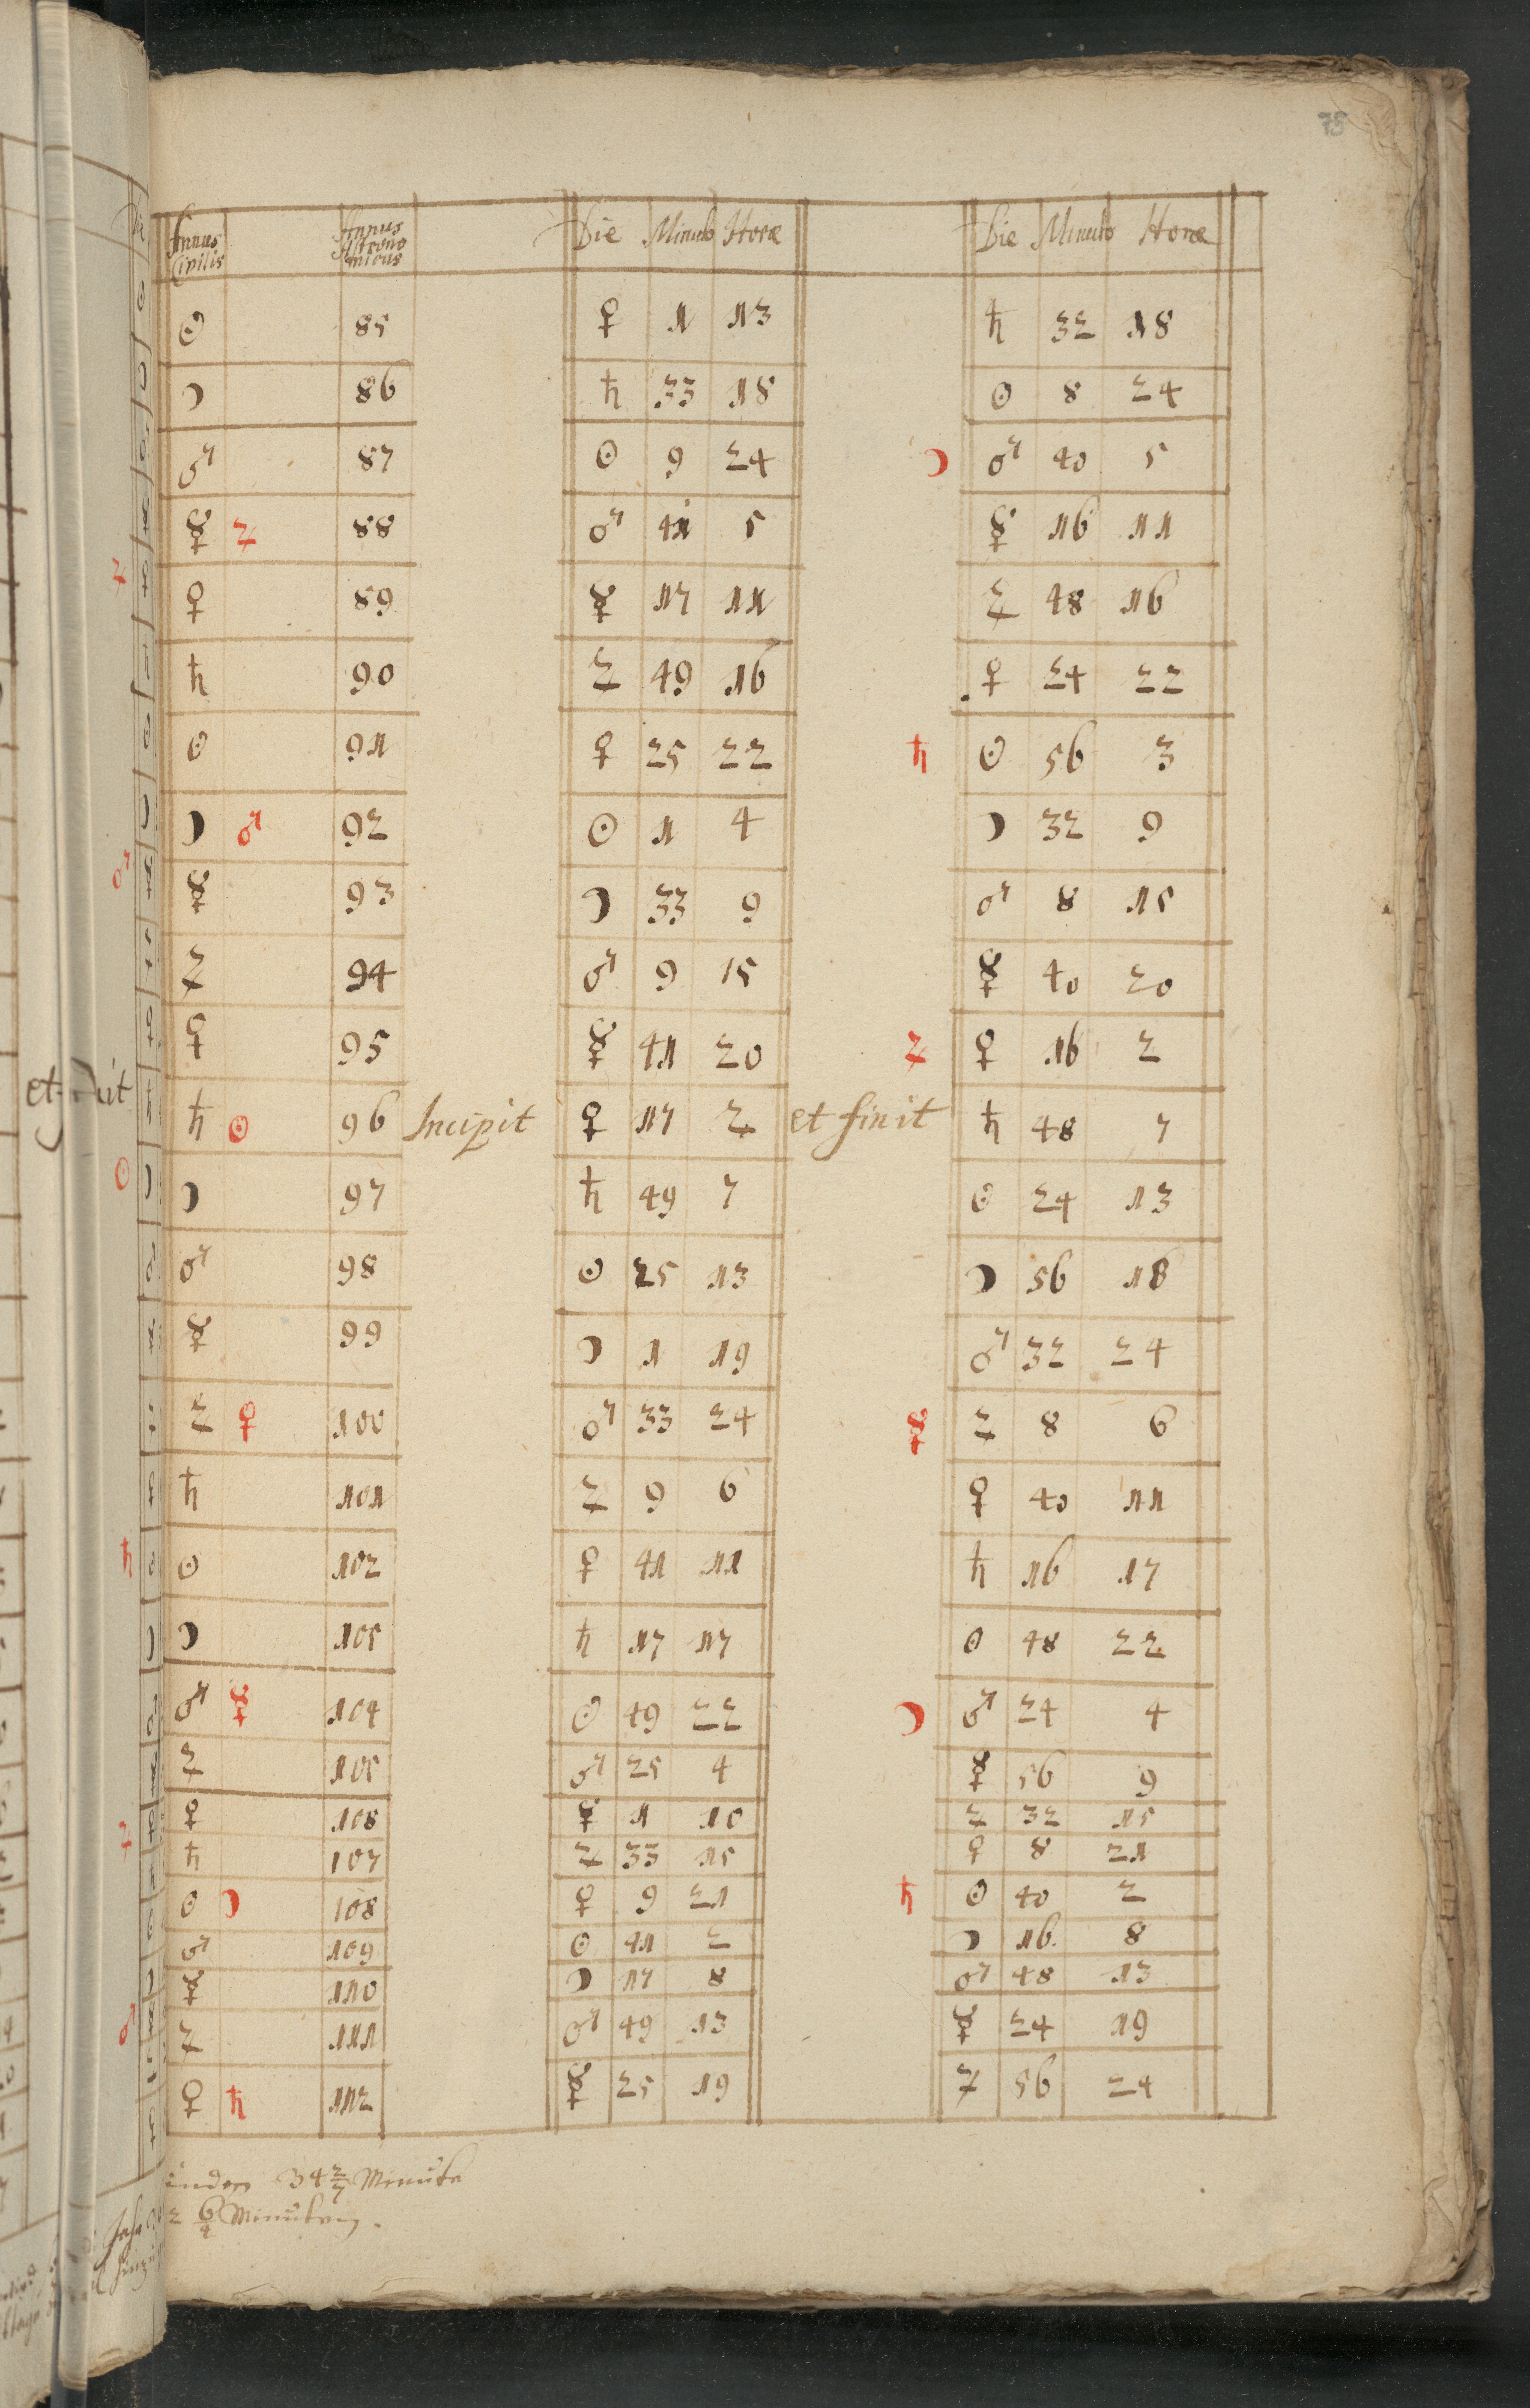 75
Annus Civilis Annus Astronomicus Die Minuto Horæ Die Minuto Horæ
☉ 85 ♀ 1 13 ♄ 32 18
☽ 86 ♄ 33 18 ☉ 8 24
♂ 87 ☉ 9 24 ☽ ♂ 40 5
☿ ♃ 88 ♂ 41 5 ☿ 16 11
♀ 89 ☿ 17 11 ♃ 48 16
♄ 90 ♃ 49 16 ♀ 24 22
☉ 91 ♀ 25 22 ♄ ☉ 56 3
☽ ♂ 92 ☉ 1 4 ☽ 32 9
☿ 93 ☽ 33 9 ♂ 8 15
♃ 94 ♂ 9 15 ☿ 40 20
♀ 95 ☿ 41 20 ♃ ♀ 16 2
♄ ☉ 96 Incipit ♀ 17 2 et finit ♄ 48 7
☽ 97 ♄ 49 7 ☉ 24 13
♂ 98 ☉ 25 13 ☽ 56 18
☿ 99 ☽ 1 19 ♂ 32 24
♃ ♀ 100 ♂ 33 24 ☿ ♃ 8 6
♄ 101 ♃ 9 6 ♀ 40 11
☉ 102 ♀ 41 11 ♄ 16 17
☽ 105 ♄ 17 17 ☉ 48 22
♂ ☿ 104 ☉ 49 22 ☽ ♂ 24 4
♃ 105 ♂ 25 4 ☿ 56 9
♀ 108 ☿ 1 10 ♃ 32 15
♄ 107 ♃ 33 15 ♀ 8 21
☉ ☽ 108 ♀ 9 21 ♄ ☉ 40 2
♂ 109 ☉ 41 2 ☽ 16 8
☿ 110 ☽ 17 8 ♂ 48 13
♃ 111 ♂ 49 13 ☿ 24 19
♀ ♄ 112 ☿ 25 19 ♃ 56 24
34 2/7 Minuten
Minuten.